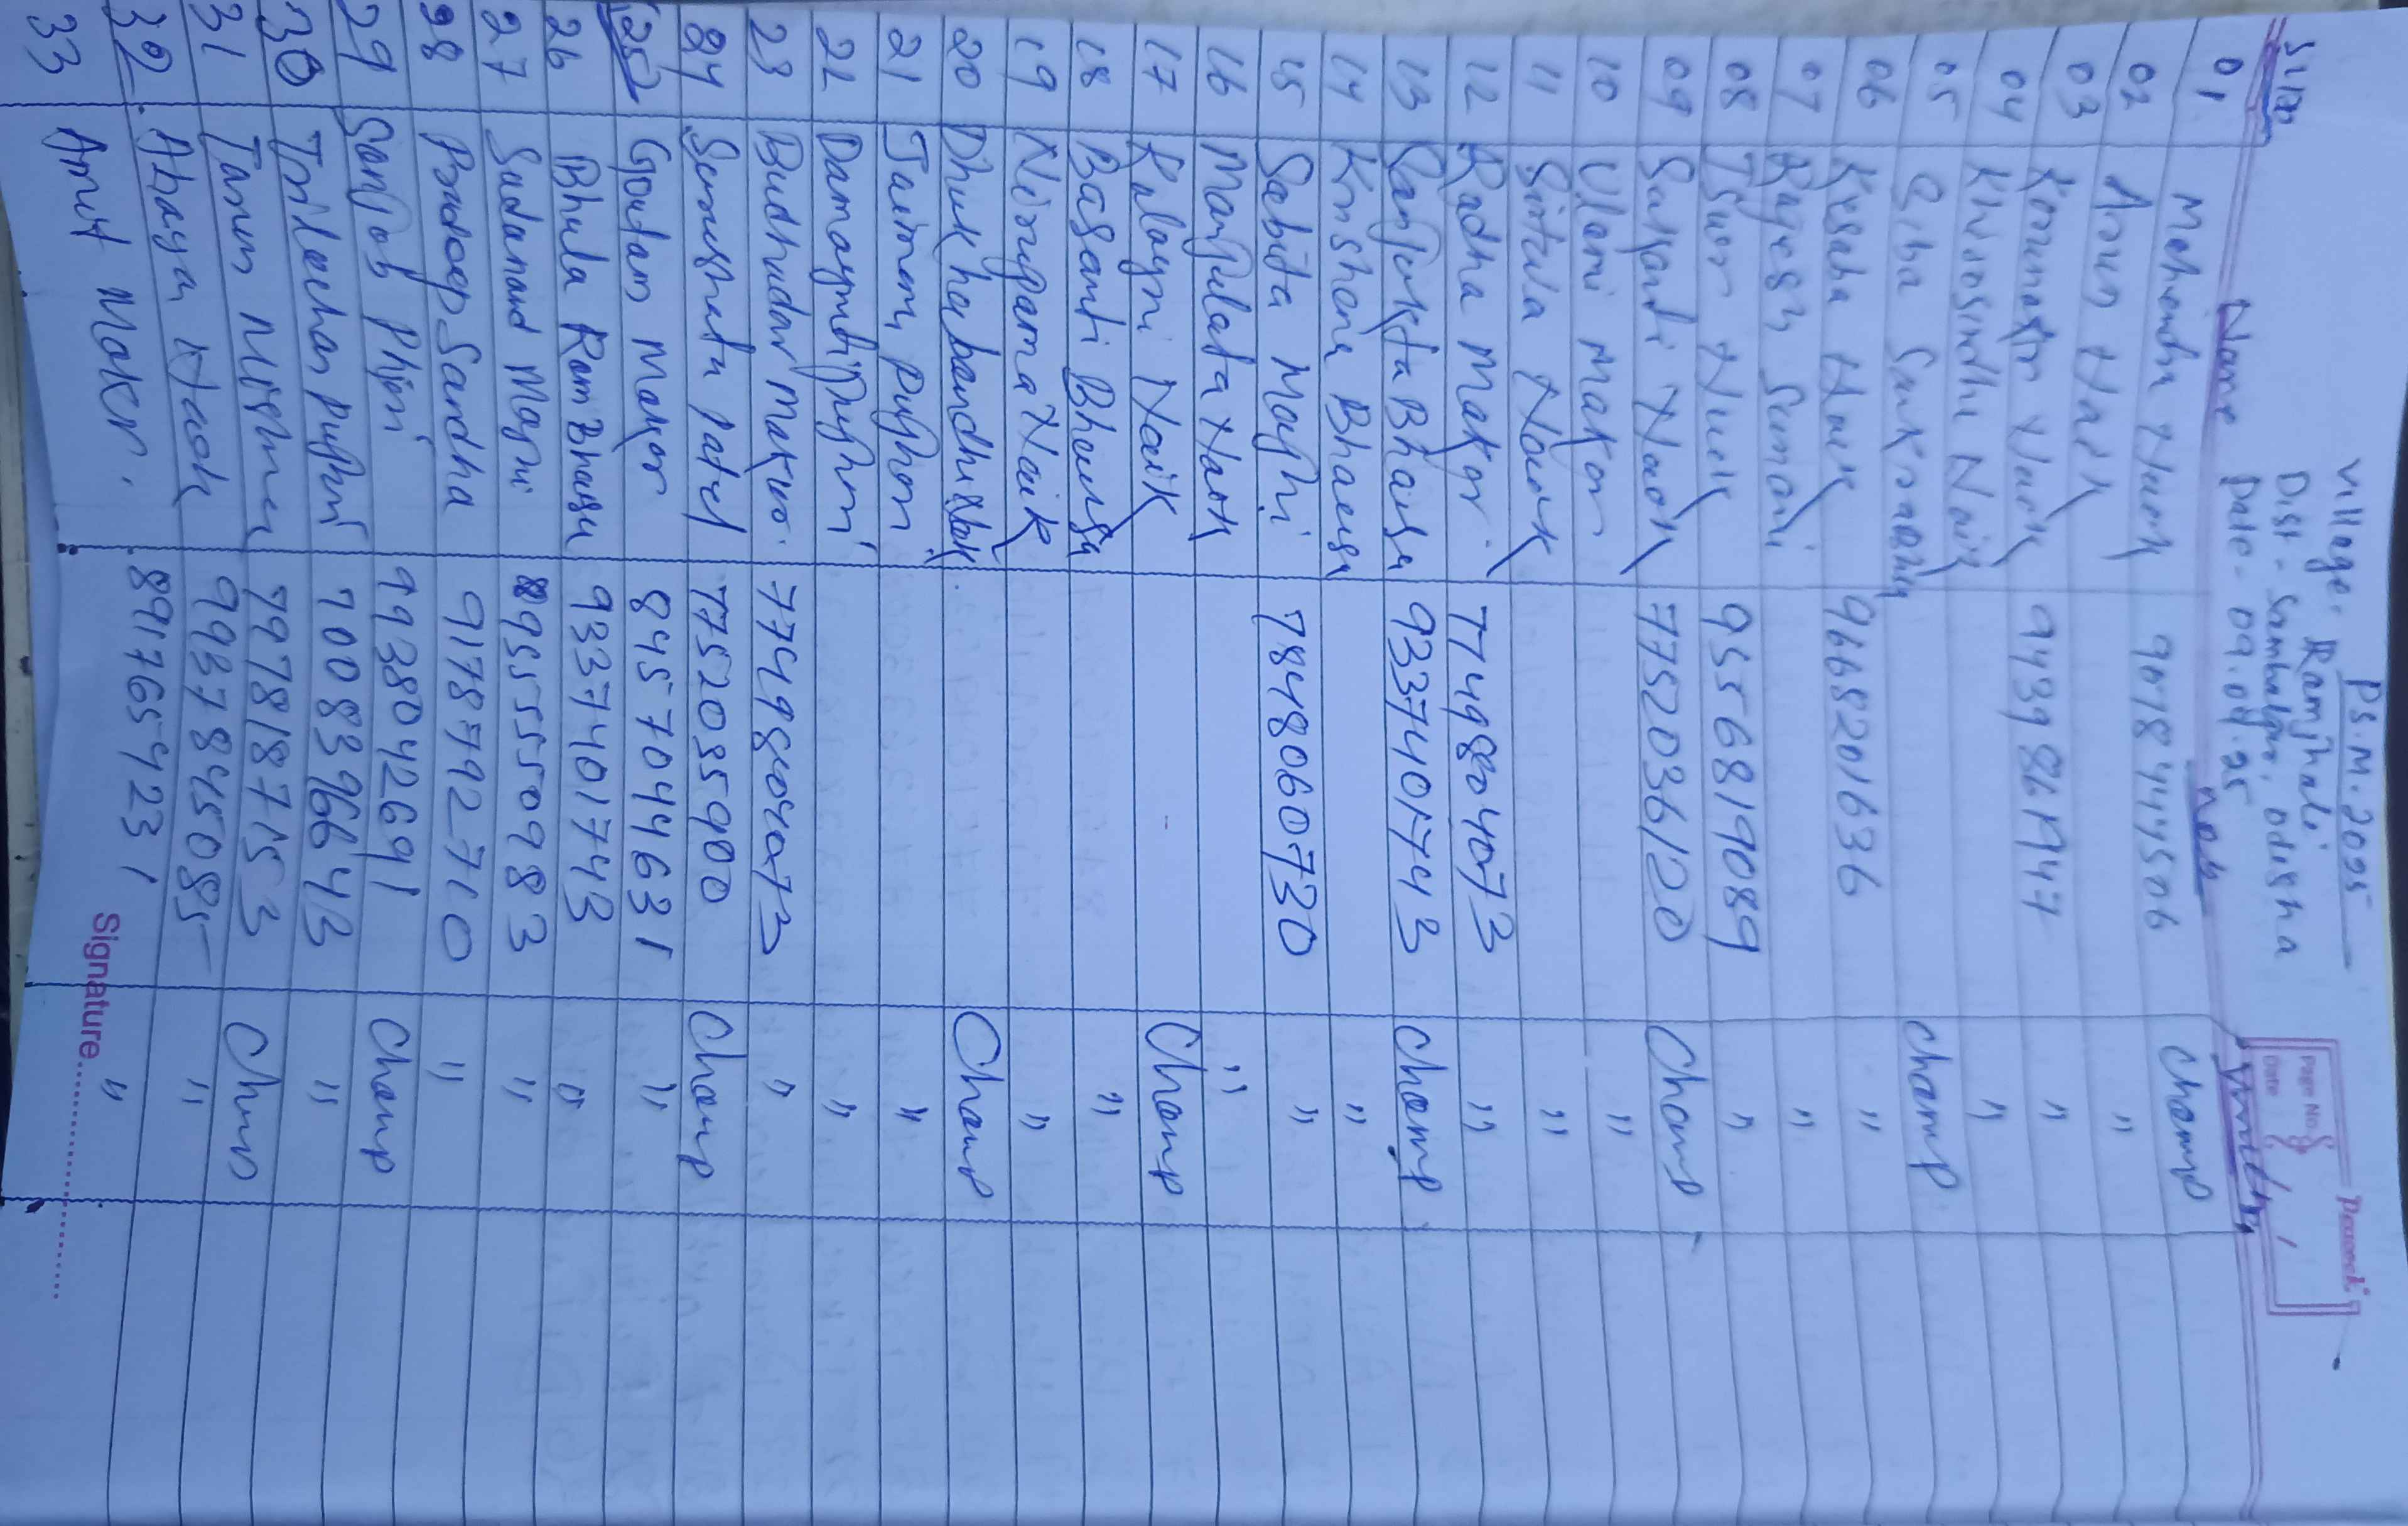 Ps.M. 2025
Village. Ramjhali
Dist - Sambalpur, odisha
Date - 09.04.25
Paramok
Page No.
Date
Sl.No Name nob
01 Mahendra Naek 9078444506 Champ
02 Arun Naek "
03 Korunakar Naek 9439861947 "
04 Khirosindhu Naik "
05 Siba champ
06 Kesaba Naek 9668201636 "
07 Rajesh "
08 Iswor Naek 9556819089 "
09 Sukanti Naek 7752036120 Champ
10 Ulani Makar "
11 Sintula Naek "
12 Radha Makar 7749804073 "
13 Sanjukta Bhainsa 9337401743 champ
14 Krishana Bhaensa "
15 Sabita Majhi 7848060730 "
16 Manjulata Naek "
17 Kalayni Naik Champ
18 Basanti Bhainsa "
19 Nirupama Naik "
20 Champ
21 Jairam pujhari "
22 Damaynti Pujhari "
23 Budhudar Makar 7749804073 "
24 patel 7752035900 Champ
25 Goutam Makar 8457044631 "
26 Bhula Ram Bhainsa 9337401743 "
27 Sadanand Majhi 9555550983 "
28 Pradeep Sandha 9178792710 "
29 Sanjob 9938042691 Champ
30 Trilochan Pujhri 7008396643 "
31 Tarun Mishra 7978187153 Champ
32. Abhaya Naek 9937845085 "
33 Amit Maker. 8917654231 "
Signature